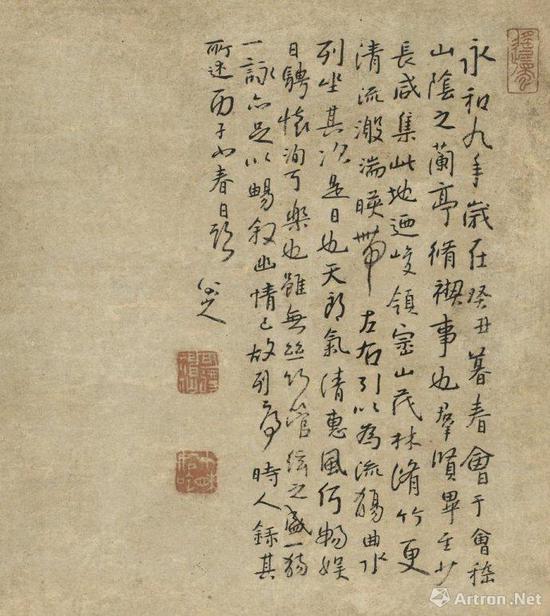 永和九年歲在癸丑暮春會于會稽
山陰之蘭亭脩禊事也羣賢畢至少
長咸集此地迺峻領崇山茂林脩竹更
清流激湍暎帶左右引以為流觴曲水
列坐其次是日也天朗氣清惠風和暢娛
目騁懷洵可樂也雖無絲竹管絃之盛一觴
一詠亦足以暢敘幽情已故列序時人錄其
所述丙子小春日題 八大
雅昌艺术网
Artron.Net